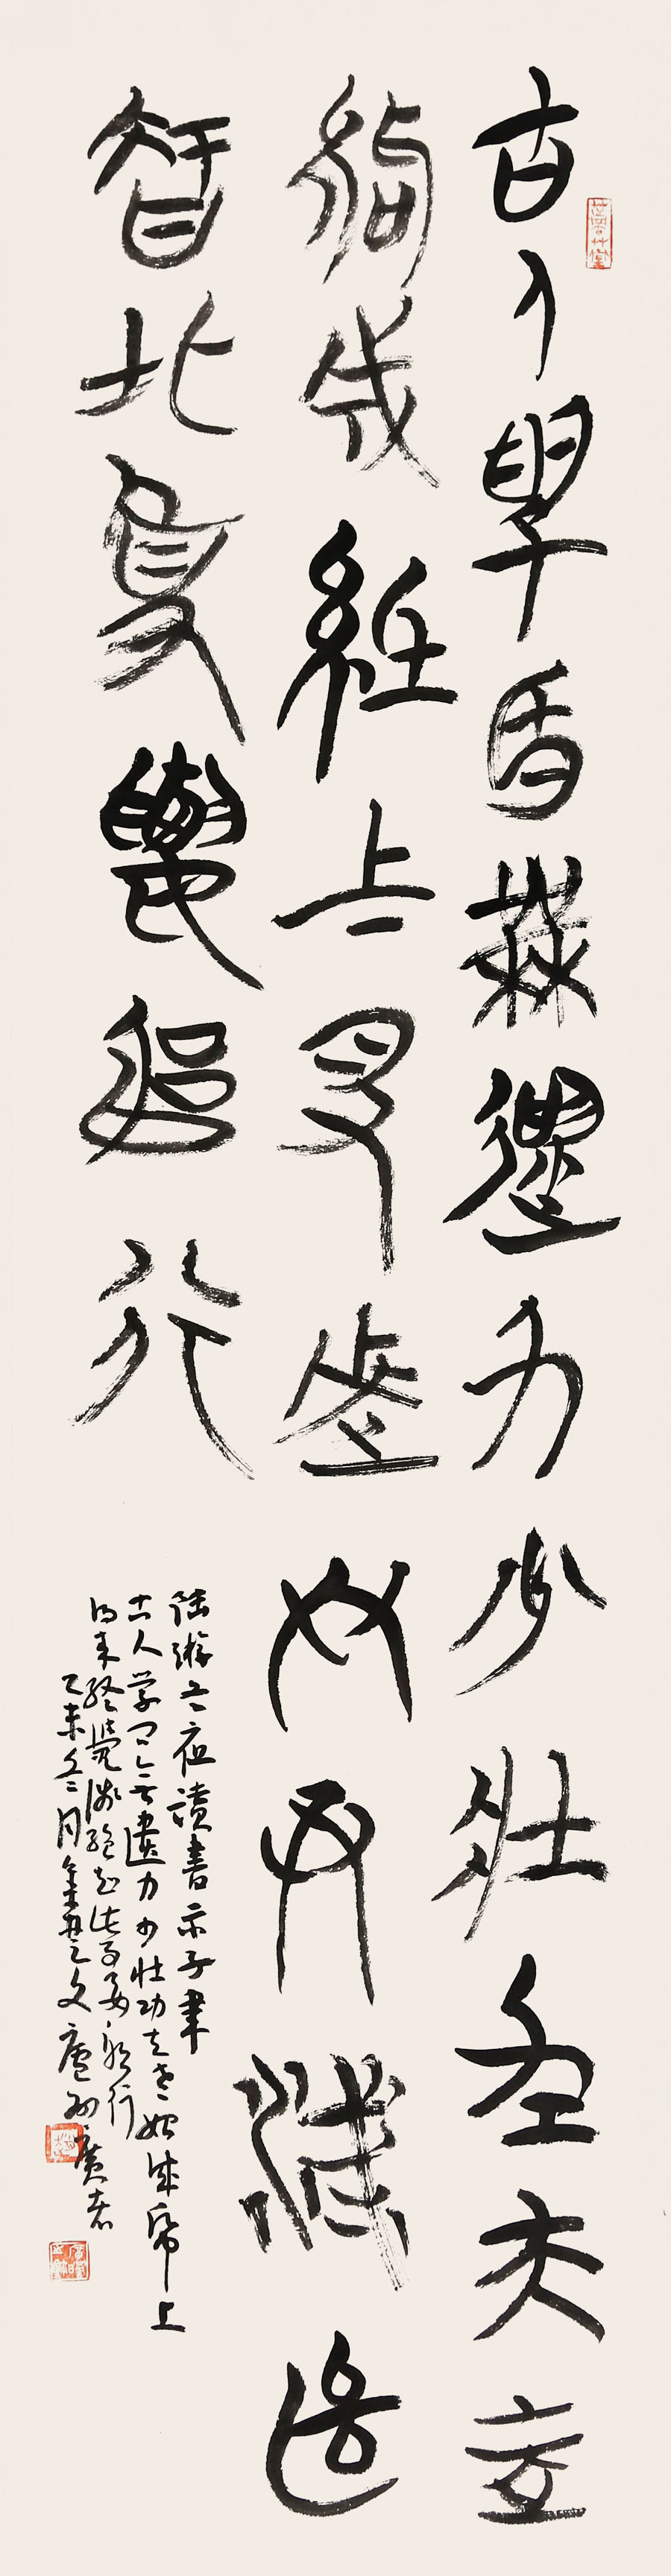 古人學問無遺力少壯工夫老
始成紙上得來終覺淺絕
智此事要躬行
陸游冬夜讀書示子聿
古人学問無遺力少壯功夫老始成紙上
得来終覺淺絕知此事要躬行
乙未冬月集金文